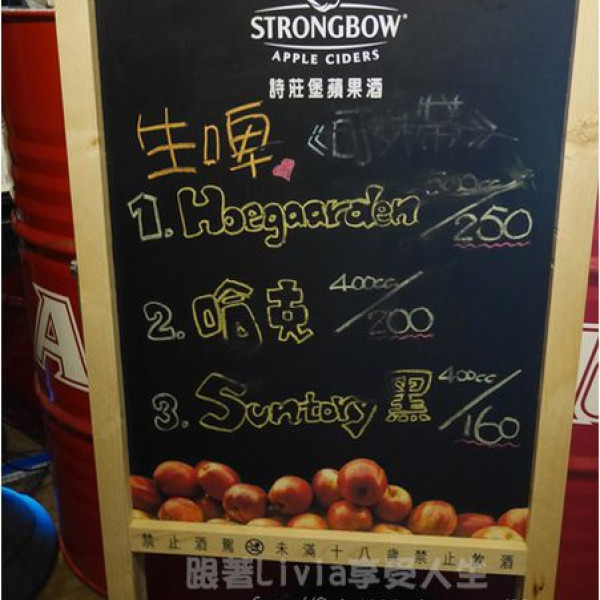 STRONGBOW
APPLE CIDERS
詩莊堡蘋果酒
生啤《可外帶》
1. Hoegaarden 500cc/250
2. 哈克 400cc/200
3. Suntory 黑 400cc/160
禁止酒駕 未滿十八歲禁止飲酒
跟著Livia享受人生